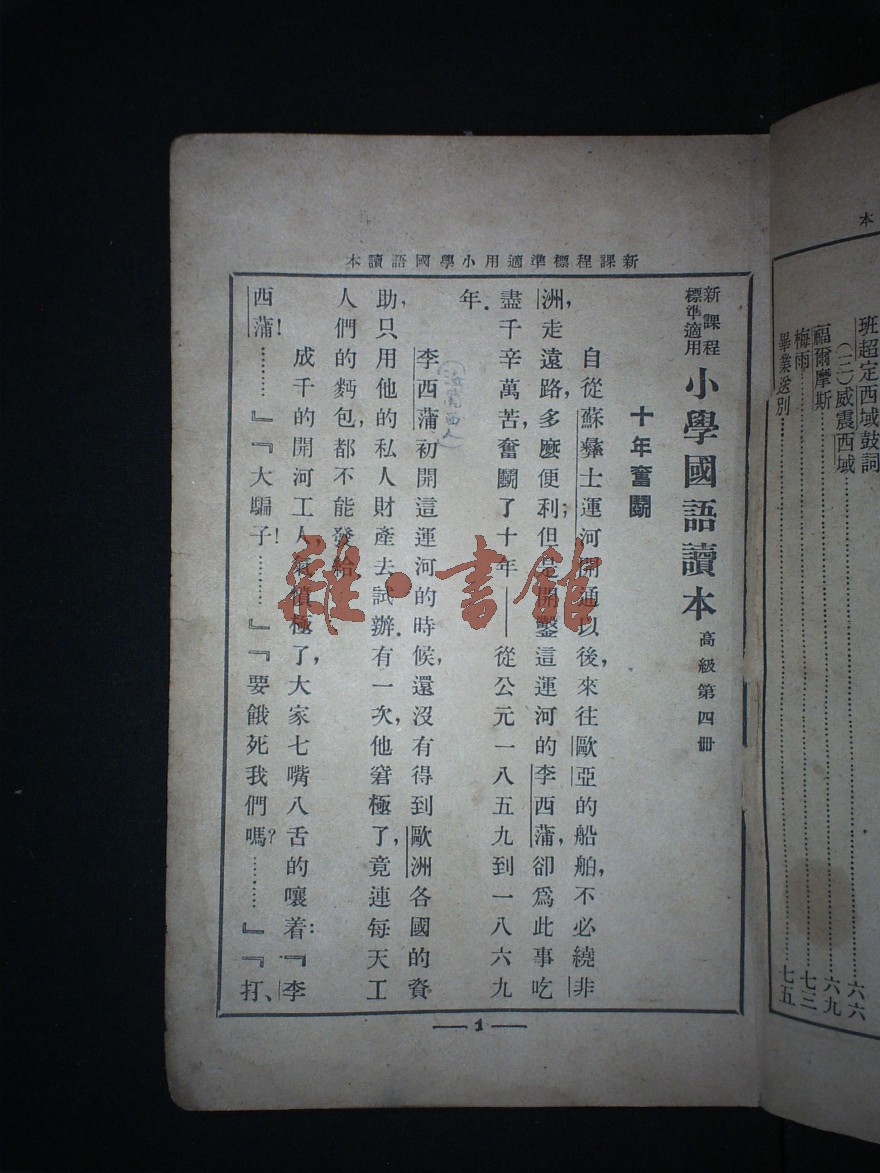 新課程標準適用小學國語讀本
新課程
標準適用
小學國語讀本
高級第四冊
十年奮鬭
自從蘇彝士運河開通以後,來往歐亞的船舶,不必繞非
洲,走遠路,多麼便利;但是開鑿這運河的李西蒲,卻爲此事吃
盡千辛萬苦,奮鬭了十年——從公元一八五九到一八六九
年.
李西蒲初開這運河的時候,還沒有得到歐洲各國的資
助,只用他的私人財產去試辦.有一次,他窘極了,竟連每天工
人們的麪包,都不能發給.
成千的開河工人,氣憤極了,大家七嘴八舌的嚷着:『李
西蒲!………』『大騙子!………』『要餓死我們嗎?………』『打、
1
雜·書館
本
班超定西域鼓詞
(三)威震西域 六六
福爾摩斯 六九
梅雨 七三
畢業送別 七五